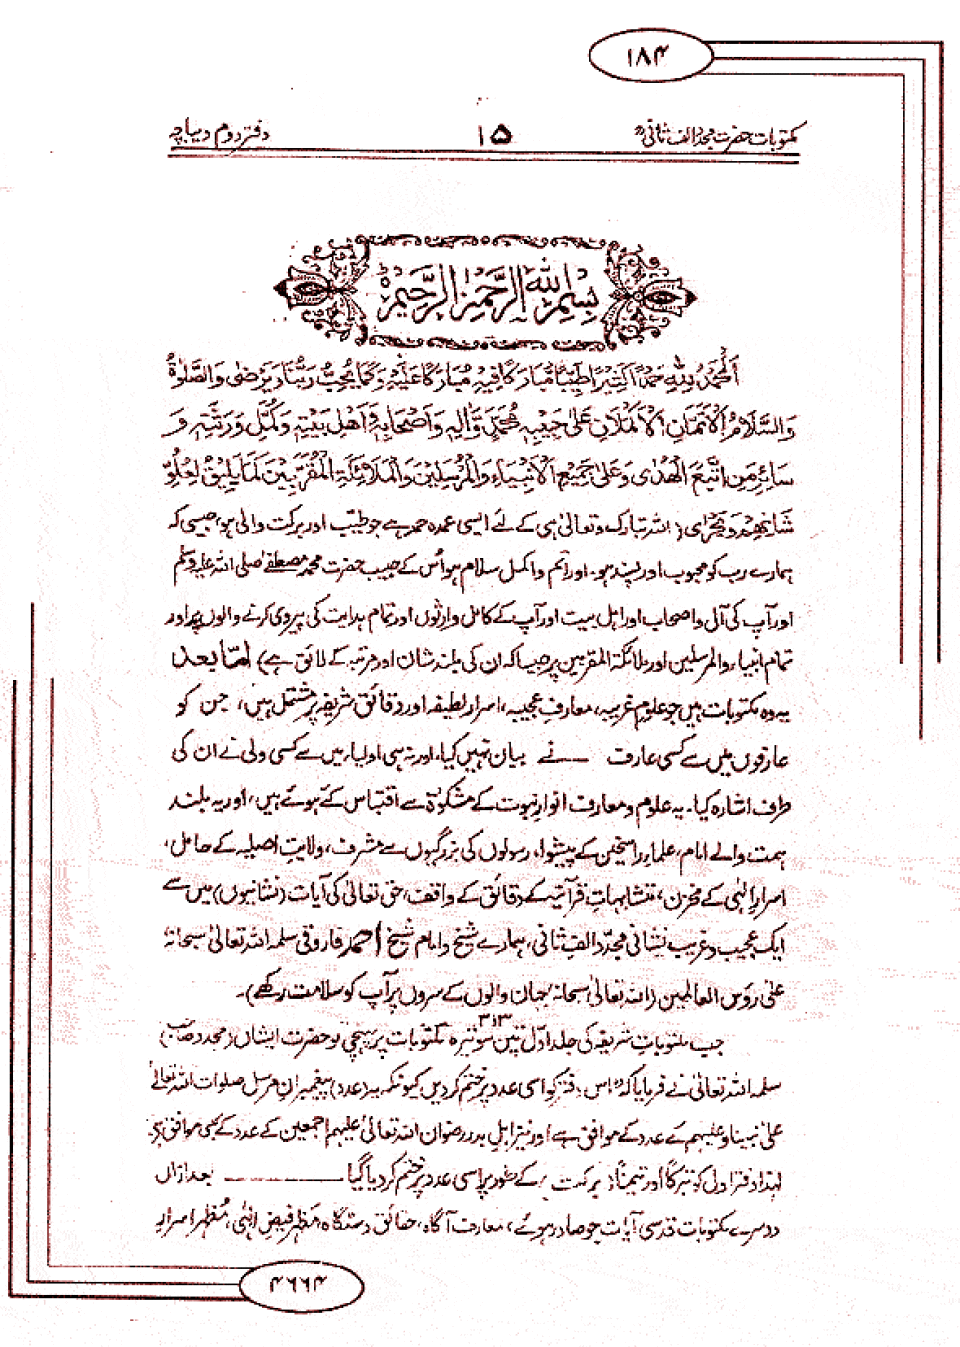 ۱۸۴
مکتوبات حضرت مجدد الف ثانیؒ ۱۵ دفتر دوم دیباچہ
بِسْمِ اللهِ الرَّحْمٰنِ الرَّحِیْمِ
اَلْحَمْدُ لِلّٰهِ حَمْدًا کَثِیْرًا طَیِّبًا مُّبَارَکًا فِیْهِ مُبَارَکًا عَلَیْهِ کَمَا یُحِبُّ رَبُّنَا وَ یَرْضٰی وَالصَّلٰوةُ
وَالسَّلَامُ اَلْاَتَمَّانِ الْاَکْمَلَانِ عَلٰی حَبِیْبِهٖ مُحَمَّدٍ وَّاٰلِهٖ وَاَصْحَابِهٖ وَاَهْلِ بَیْتِهٖ وَکُمَّلِ وَرَثَتِهٖ وَ
سَائِرِ مَنِ اتَّبَعَ الْهُدٰی وَعَلٰی جَمِیْعِ الْاَنْبِیَاءِ وَالْمُرْسَلِیْنَ وَالْمَلَائِکَةِ الْمُقَرَّبِیْنَ کَمَا یَلِیْقُ لِعُلُوِّ
شَانِهِمْ (اللہ تبارک و تعالیٰ ہی کے لئے ایسی عمدہ حمد ہے جو طیّب اور برکت والی ہو، جیسی کہ
ہمارے رب کو محبوب اور پسند ہو۔ اور اتم و اکمل سلام ہو اُس کے حبیب حضرت محمد مصطفےٰ صلی اللہ علیہ وسلم
اور آپ کی آل و اصحاب اور اہل بیت اور آپ کے کامل وارثوں اور تمام ہدایت کی پیروی کرنے والوں پر اور
تمام انبیاء و المرسلین اور ملائکۃ المقربین پر جیسا کہ ان کی بلند شان اور مرتبہ کے لائق ہے) اما بعد
یہ وہ مکتوبات ہیں جو علومِ غریبہ، معارفِ عجیبہ، اسرارِ لطیفہ اور دقائقِ شریفہ پر مشتمل ہیں، جن کو
عارفوں میں سے کسی عارف ــــ نے بیان نہیں کیا، اور نہ ہی اولیاء میں سے کسی ولی نے ان کی
طرف اشارہ کیا۔ یہ علوم و معارف انوارِ نبوت کے مشکوٰۃ سے اقتباس کئے ہوئے ہیں، اور یہ بلند
ہمت والے امام، علماء راسخین کے پیشوا، رسولوں کی بزرگیوں سے مشرف، ولایتِ اصلیہ کے حامل،
اسرارِ الٰہی کے مخزن، متشابہاتِ قرآنیہ کے دقائق کے واقف، حق تعالیٰ کی آیات (نشانیوں) میں سے
ایک عجیب و غریب نشانی مجدّد الف ثانی، ہمارے شیخ و امام شیخ احمد فاروقی سلمہ اللہ تعالیٰ سبحانہٗ
علیٰ رؤس العالمین (اللہ تعالیٰ سبحانہٗ جہان والوں کے سروں پر آپ کو سلامت رکھے)۔
جب مکتوباتِ شریفہ کی جلد اوّل تین سو تیرہ ۳۱۳ مکتوبات پر پہنچی تو حضرت ایشاں (مجدد صاحب)
سلمہ اللہ تعالیٰ نے فرمایا کہ "اس دفتر کو اسی عدد پر ختم کر دیں کیونکہ یہ (عدد) پیغمبرانِ مرسل صلوات اللہ تعالیٰ
علیٰ نبینا و علیہم کے عدد کے موافق ہے اور نیز اہلِ بدر رضوان اللہ تعالیٰ علیہم اجمعین کے عدد کے بھی موافق ہے۔
لہٰذا دفتر اول کو تبرکاً اور تیمناً برکت کے طور پر اسی عدد پر ختم کر دیا گیا ـــــــ بعد ازاں
دوسرے مکتوبات قدسی آیات جو صادر ہوئے، معارف آگاہ، حقائق دستگاہ، مَظہرِ فیضِ الٰہی، مُظہرِ اسرارِ
۴۶۶۴